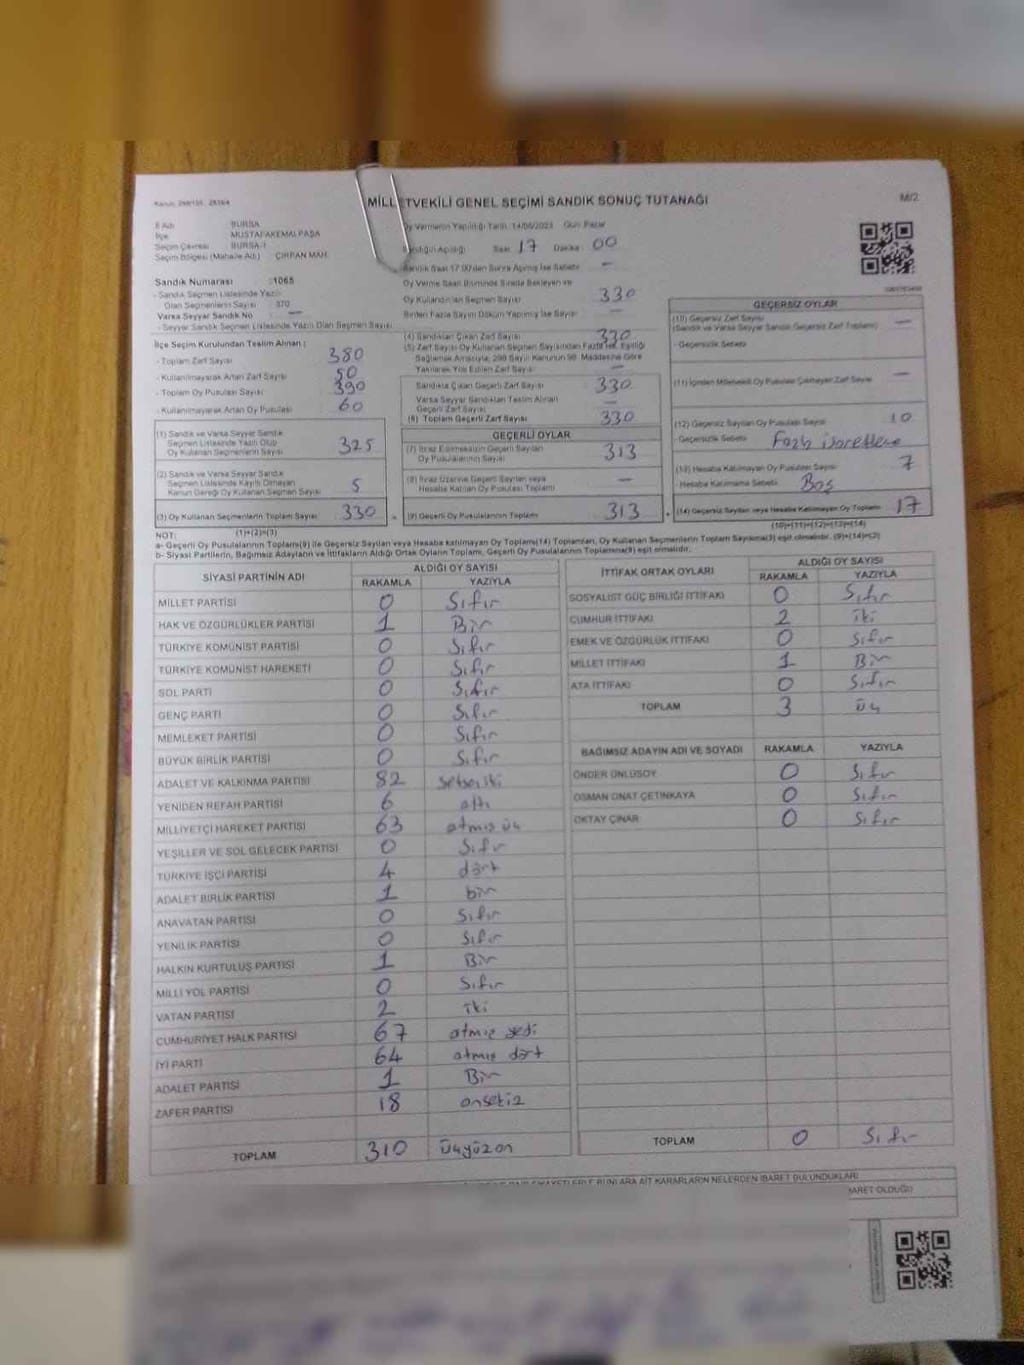 MİLLETVEKİLİ GENEL SEÇİMİ SANDIK SONUÇ TUTANAĞI
M/2
İl Adı BURSA
İlçe MUSTAFAKEMALPAŞA
Seçim Çevresi BURSA-1
Seçim Bölgesi (Mahalle Adı) ÇIRPAN MAH.
Oy Vermenin Yapıldığı Tarih: 14/05/2023 Gün: Pazar
Sandığın Açıldığı Saat 17 Dakika 00
Sandık Saat 17.00'den Sonra Açılmış İse Sebebi —
Sandık Numarası :1065
- Sandık Seçmen Listesinde Yazılı
Olan Seçmenlerin Sayısı :370
Varsa Seyyar Sandık No —
- Seyyar Sandık Seçmen Listesinde Yazılı Olan Seçmen Sayısı
Oy Verme Saati Bitiminde Sırada Bekleyen ve
Oy Kullandırılan Seçmen Sayısı 330
Birden Fazla Sayım Döküm Yapılmış İse Sayısı —
İlçe Seçim Kurulundan Teslim Alınan :
- Toplam Zarf Sayısı 380
- Kullanılmayarak Artan Zarf Sayısı 50
- Toplam Oy Pusulası Sayısı 390
- Kullanılmayarak Artan Oy Pusulası 60
(1) Sandık ve Varsa Seyyar Sandık
Seçmen Listesinde Yazılı Olup
Oy Kullanan Seçmenlerin Sayısı 325
(2) Sandık ve Varsa Seyyar Sandık
Seçmen Listesinde Kayıtlı Olmayan
Kanun Gereği Oy Kullanan Seçmen Sayısı 5
(3) Oy Kullanan Seçmenlerin Toplam Sayısı 330 =
(4) Sandıktan Çıkan Zarf Sayısı 330
(5) Zarf Sayısı Oy Kullanan Seçmen Sayısından Fazla ise, Eşitliği
Sağlamak Amacıyla, 298 Sayılı Kanunun 98. Maddesine Göre
Yakılarak Yok Edilen Zarf Sayısı —
Sandıkta Çıkan Geçerli Zarf Sayısı 330
Varsa Seyyar Sandıktan Teslim Alınan
Geçerli Zarf Sayısı —
(6) Toplam Geçerli Zarf Sayısı 330
GEÇERLİ OYLAR
(7) İtiraz Edilmeksizin Geçerli Sayılan
Oy Pusulalarının Sayısı 313
(8) İtiraz Üzerine Geçerli Sayılan veya
Hesaba Katılan Oy Pusulası Toplamı —
(9) Geçerli Oy Pusulalarının Toplamı 313 +
GEÇERSİZ OYLAR
(10) Geçersiz Zarf Sayısı —
(Sandık ve Varsa Seyyar Sandık Geçersiz Zarf Toplamı)
- Geçersizlik Sebebi
(11) İçinden Milletvekili Oy Pusulası Çıkmayan Zarf Sayısı —
(12) Geçersiz Sayılan Oy Pusulası Sayısı 10
- Geçersizlik Sebebi Fazla işaretleme
(13) Hesaba Katılmayan Oy Pusulası Sayısı 7
- Hesaba Katılmama Sebebi Boş
(14) Geçersiz Sayılan veya Hesaba Katılmayan Oy Toplamı 17
(10)+(11)+(12)+(13)=(14)
NOT: (1)+(2)=(3)
a- Geçerli Oy Pusulalarının Toplamı(9) ile Geçersiz Sayılan veya Hesaba katılmayan Oy Toplamı(14) Toplamları, Oy Kullanan Seçmenlerin Toplam Sayısına(3) eşit olmalıdır. (9)+(14)=(3)
b- Siyasi Partilerin, Bağımsız Adayların ve İttifakların Aldığı Ortak Oyların Toplamı, Geçerli Oy Pusulalarının Toplamına(9) eşit olmalıdır.
SİYASİ PARTİNİN ADI ALDIĞI OY SAYISI
RAKAMLA YAZIYLA
MİLLET PARTİSİ 0 Sıfır
HAK VE ÖZGÜRLÜKLER PARTİSİ 1 Bir
TÜRKİYE KOMÜNİST PARTİSİ 0 Sıfır
TÜRKİYE KOMÜNİST HAREKETİ 0 Sıfır
SOL PARTİ 0 Sıfır
GENÇ PARTİ 0 Sıfır
MEMLEKET PARTİSİ 0 Sıfır
BÜYÜK BİRLİK PARTİSİ 0 Sıfır
ADALET VE KALKINMA PARTİSİ 82 seksen iki
YENİDEN REFAH PARTİSİ 6 altı
MİLLİYETÇİ HAREKET PARTİSİ 63 atmış üç
YEŞİLLER VE SOL GELECEK PARTİSİ 0 Sıfır
TÜRKİYE İŞÇİ PARTİSİ 4 dört
ADALET BİRLİK PARTİSİ 1 bir
ANAVATAN PARTİSİ 0 Sıfır
YENİLİK PARTİSİ 0 Sıfır
HALKIN KURTULUŞ PARTİSİ 1 Bir
MİLLİ YOL PARTİSİ 0 Sıfır
VATAN PARTİSİ 2 iki
CUMHURİYET HALK PARTİSİ 67 atmış yedi
İYİ PARTİ 64 atmış dört
ADALET PARTİSİ 1 Bir
ZAFER PARTİSİ 18 onsekiz
TOPLAM 310 üçyüzon
İTTİFAK ORTAK OYLARI ALDIĞI OY SAYISI
RAKAMLA YAZIYLA
SOSYALİST GÜÇ BİRLİĞİ İTTİFAKI 0 Sıfır
CUMHUR İTTİFAKI 2 iki
EMEK VE ÖZGÜRLÜK İTTİFAKI 0 Sıfır
MİLLET İTTİFAKI 1 Bir
ATA İTTİFAKI 0 Sıfır
TOPLAM 3 üç
BAĞIMSIZ ADAYIN ADI VE SOYADI RAKAMLA YAZIYLA
ÖNDER ÜNLÜSOY 0 Sıfır
OSMAN ONAT ÇETİNKAYA 0 Sıfır
OKTAY ÇINAR 0 Sıfır
TOPLAM 0 Sıfır